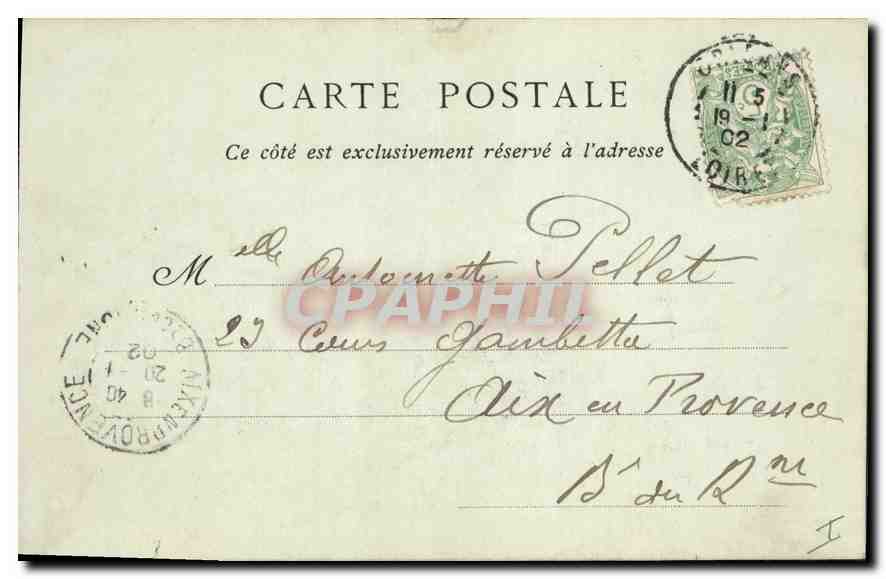 CARTE POSTALE
Ce côté est exclusivement réservé à l'adresse
ORLEANS
11 5
19 -1
02
LOIRET
Melle Antoinette Pellet
23 Cours Gambetta
Aix en Provence
Bs du Rne
CPAPHIL
AIX EN PROVENCE
8 40
20 -1
02
I